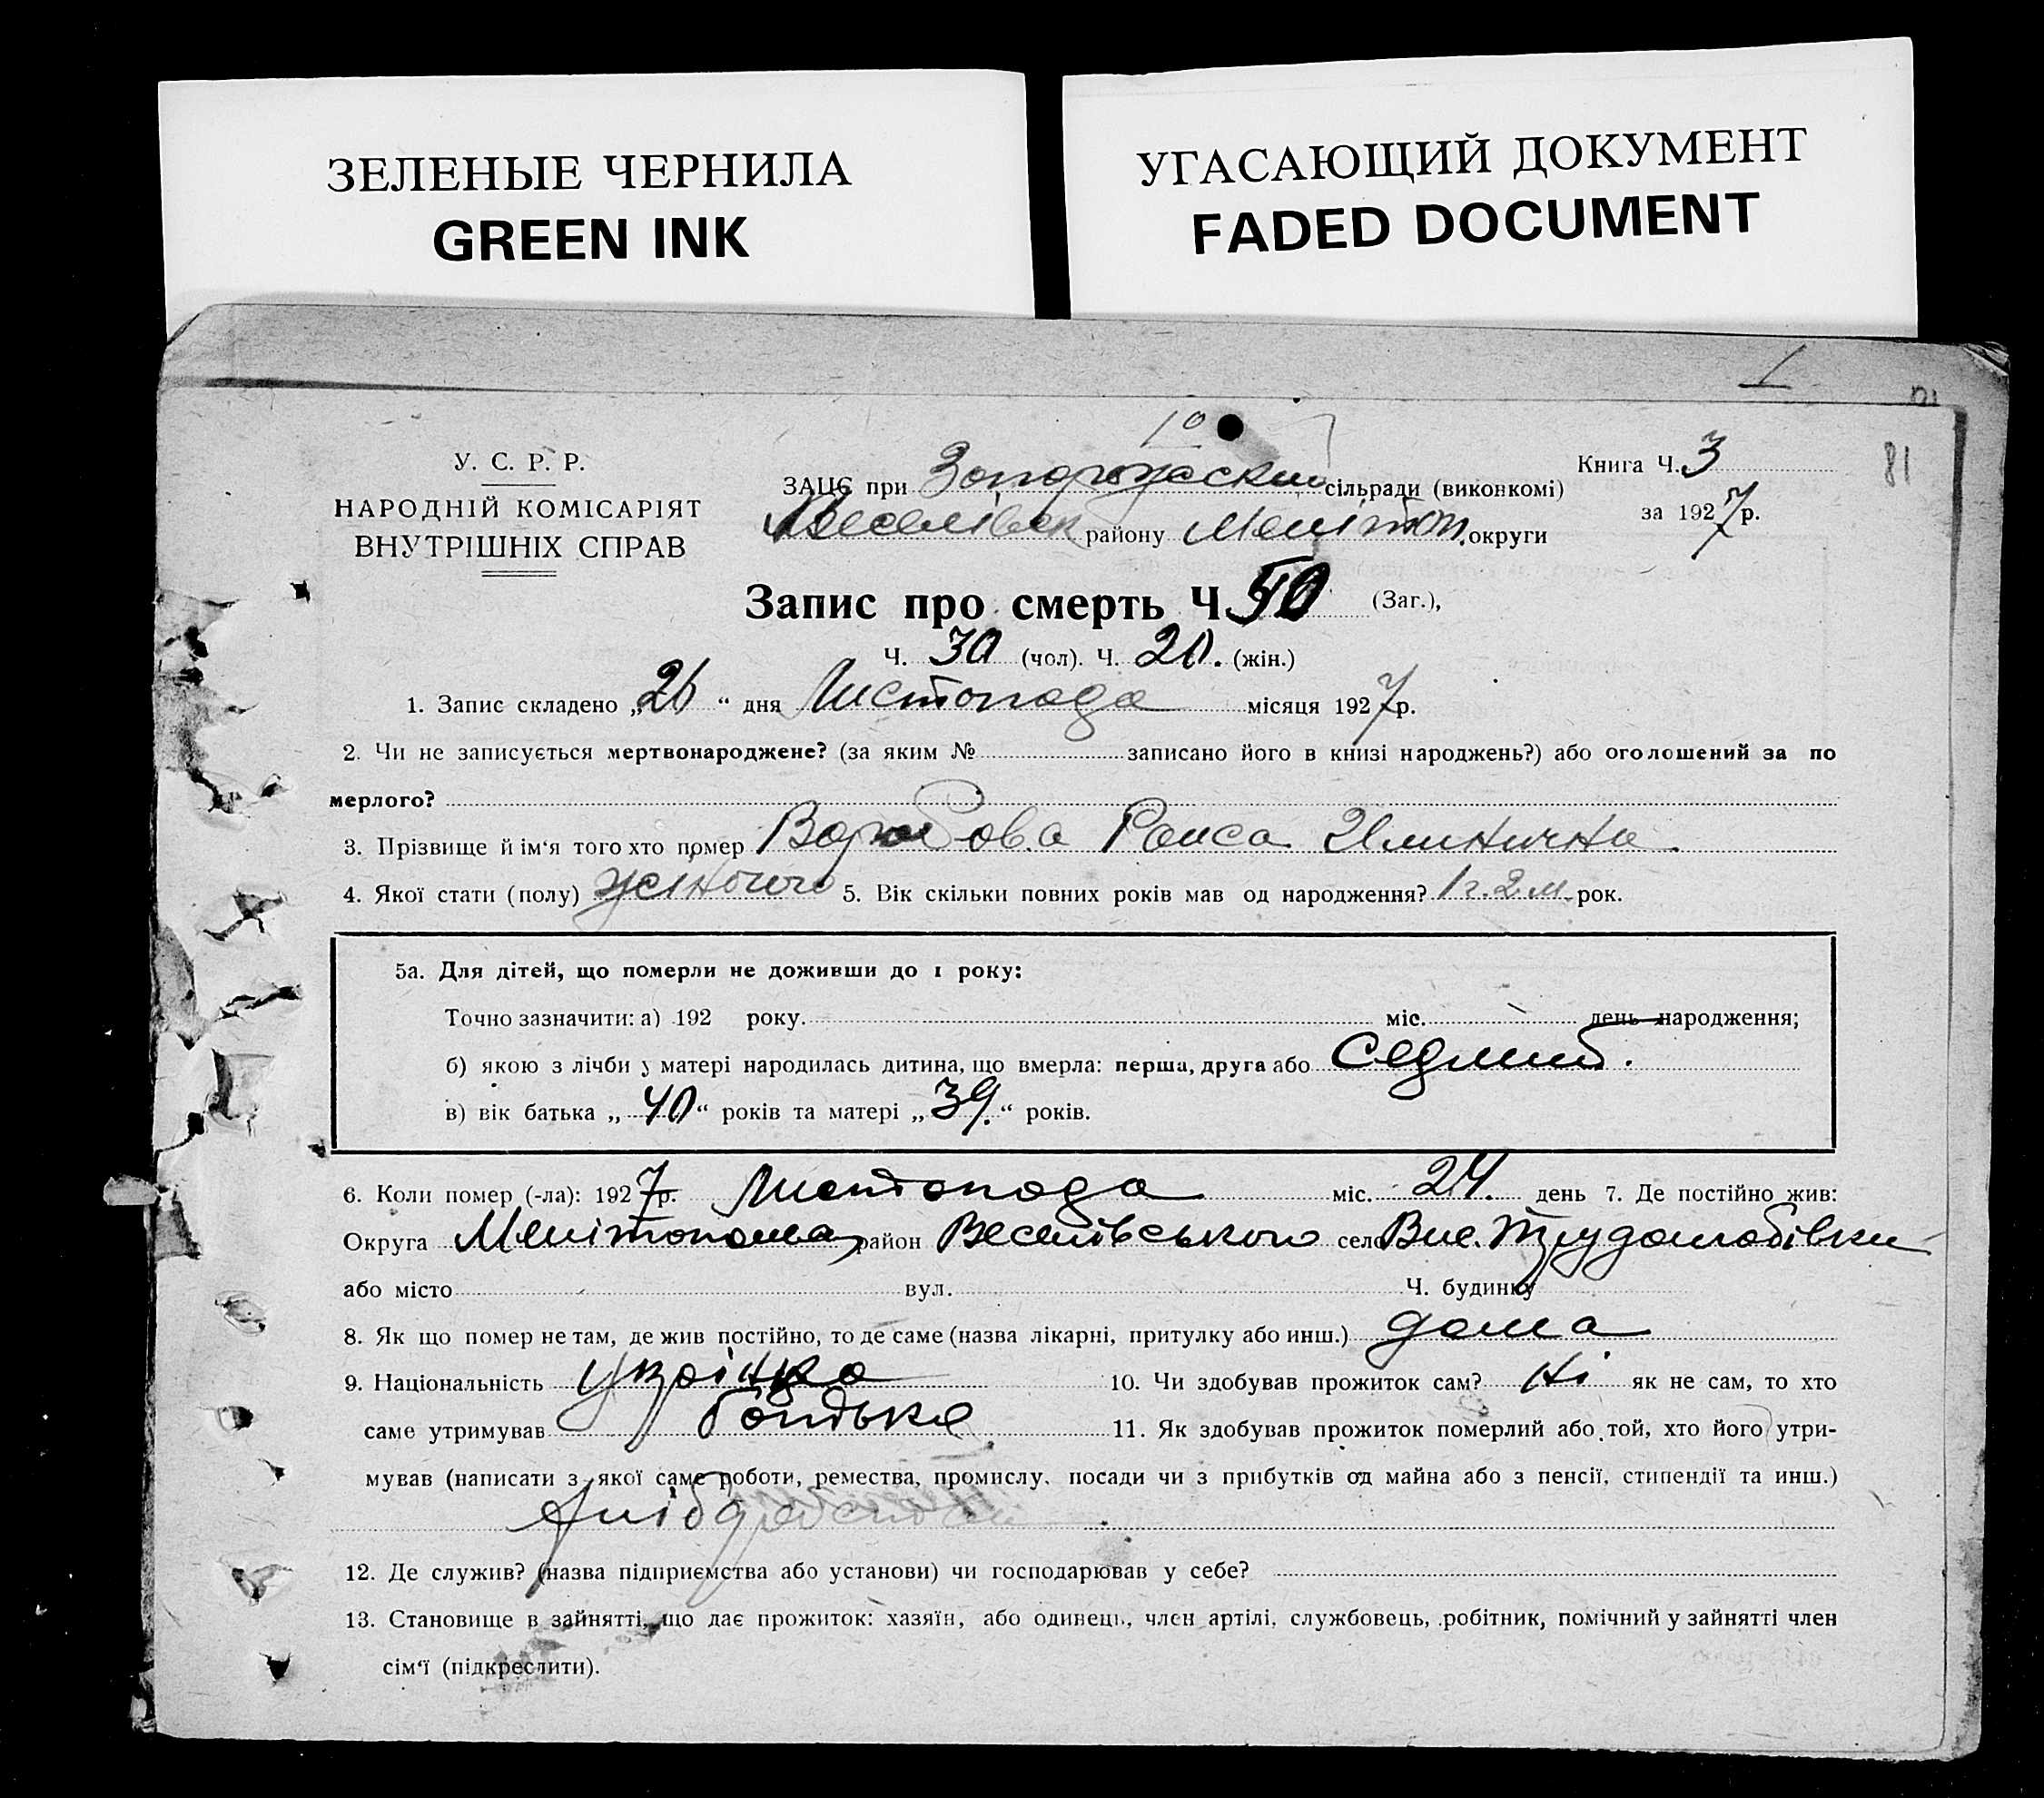 ЗЕЛЕНЫЕ ЧЕРНИЛА
GREEN INK
УГАСАЮЩИЙ ДОКУМЕНТ
FADED DOCUMENT
10
81
У. С. Р. Р.
НАРОДНІЙ КОМІСАРІЯТ
ВНУТРІШНІХ СПРАВ
ЗАЦС при сільради (виконкомі)
району Меліто́п. округи
Книга Ч. 3
за 1927 р.
Запис про смерть Ч. 50 (Заг.),
Ч. 30 (чол). Ч. 20. (жін.)
1. Запис складено „26“ дня Листопада місяця 1927 р.
2. Чи не записується мертвонароджене? (за яким № записано його в книзі народжень?) або оголошений за по
мерлого?
3. Прізвище й ім‘я того хто помер Раиса
4. Якої стати (полу) жіночого 5. Вік скільки повних років мав од народження? 1 г. 2 м. рок.
5а. Для дітей, що померли не доживши до 1 року:
Точно зазначити: а) 192 року. міс. день народження;
б) якою з лічби у матері народилась дитина, що вмерла: перша, друга або
в) вік батька „40“ років та матері „39.“ років.
6. Коли помер (-ла): 1927 р. Листопада міс. 24. день 7. Де постійно жив:
Округа район Веселівського село
або місто вул. Ч. будинку
8. Як що помер не там, де жив постійно, то де саме (назва лікарні, притулку або инш.) дома
9. Національність 10. Чи здобував прожиток сам? Ні як не сам, то хто
саме утримував батько 11. Як здобував прожиток померлий або той, хто його утри-
мував (написати з якої саме роботи, ремества, промислу, посади чи з прибутків од майна або з пенсії, стипендії та инш.)
12. Де служив? (назва підприємства або установи) чи господарював у себе?
13. Становище в зайнятті, що дає прожиток: хазяїн, або одинець, член артілі, службовець, робітник, помічний у зайнятті член
сім‘ї (підкреслити).